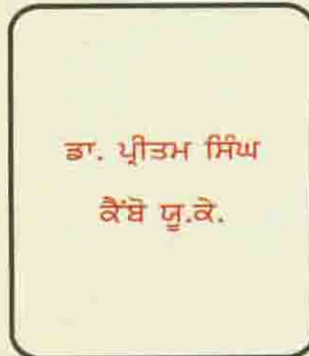 ਡਾ. ਪ੍ਰੀਤਮ ਸਿੰਘ
ਕੈਂਬੋ ਯੂ.ਕੇ.